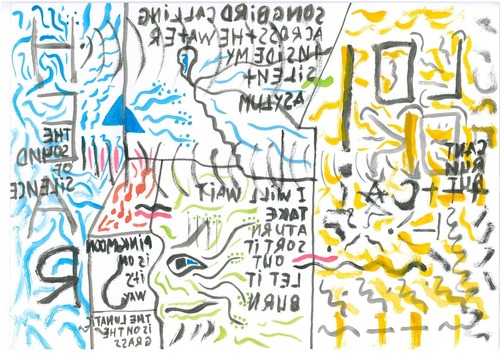 HEAR
THE
SOUND
OF
SILENCE
SONGBIRD CALLING
ACROSS THE WATER
INSIDE MY
SILENT
ASYLUM
I WILL WAIT
TAKE
A TURN
SORT IT
OUT
LET IT
BURN
PINK MOON
IS ON
ITS
WAY
THE LUNATIC
IS ON THE
GRASS
CANT
RUN
BUT